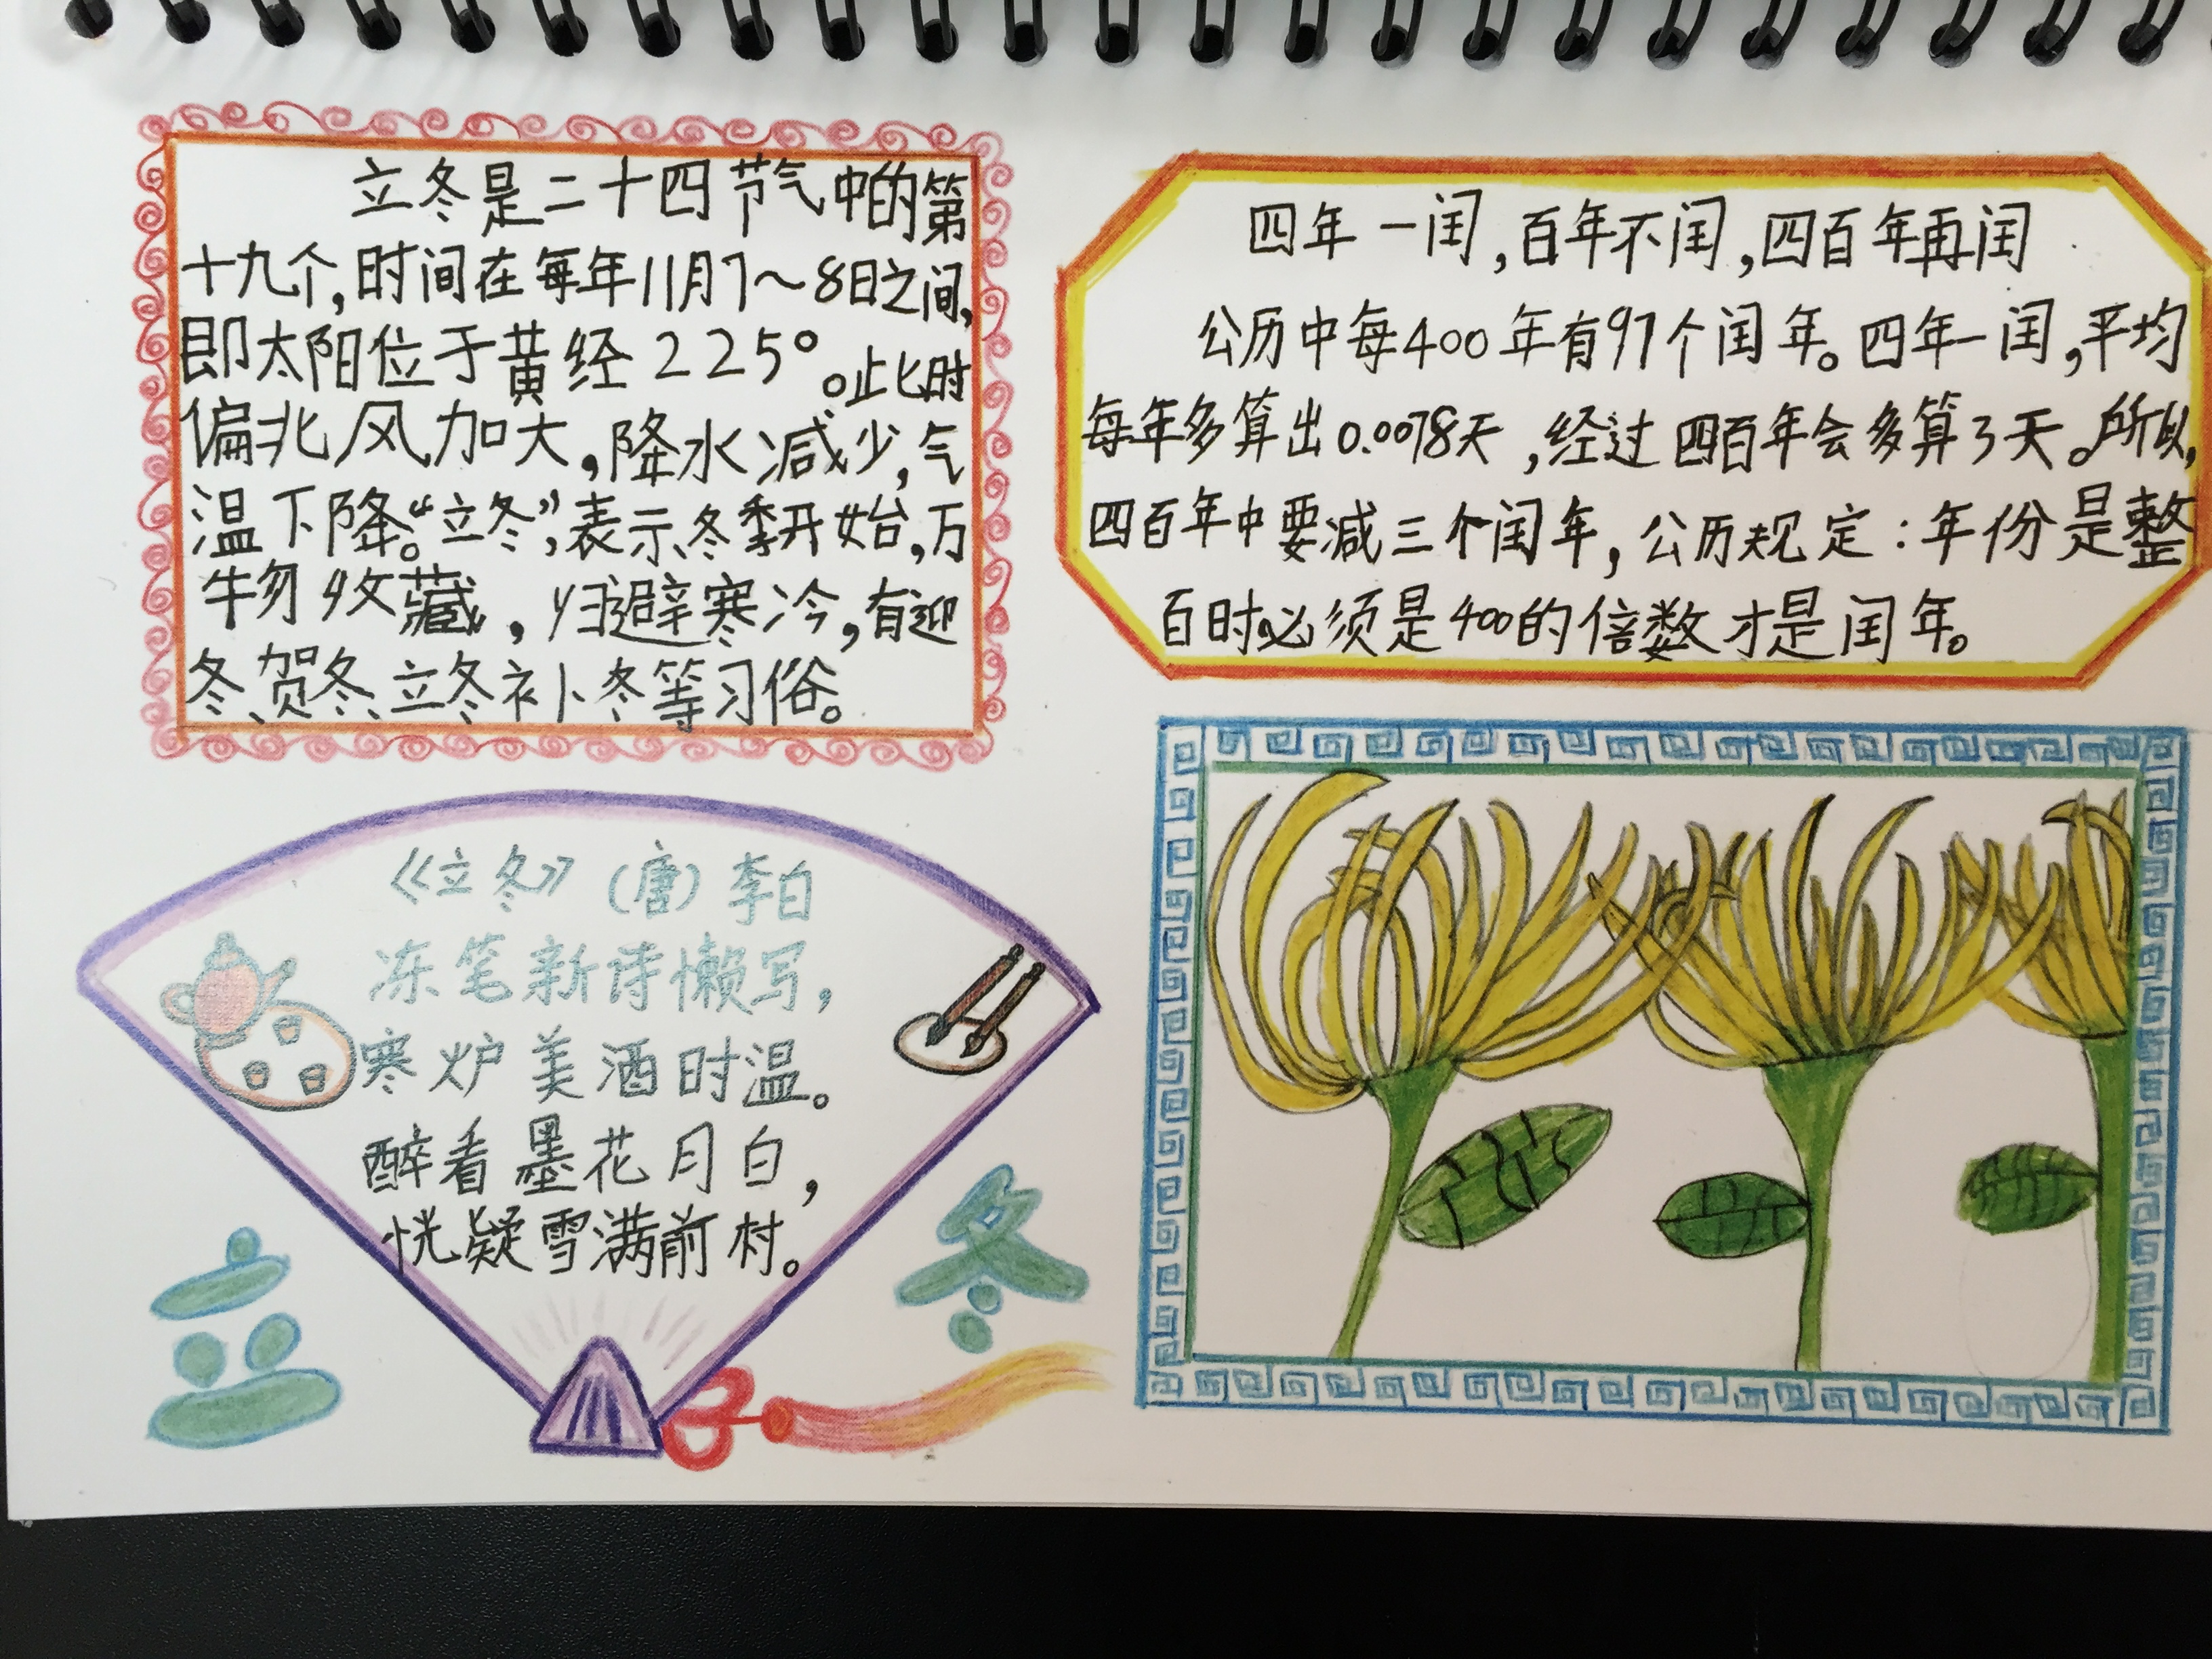 立冬是二十四节气中的第
十九个,时间在每年11月7～8日之间,
即太阳位于黄经225°。此时
偏北风加大,降水减少,气
温下降。“立冬”,表示冬季开始,万
物收藏,归避寒冷,有迎
冬、贺冬、立冬补冬等习俗。
四年一闰,百年不闰,四百年再闰
公历中每400年有97个闰年。四年一闰,平均
每年多算出0.0078天,经过四百年会多算3天。所以,
四百年中要减三个闰年,公历规定:年份是整
百时,必须是400的倍数才是闰年。
《立冬》(唐)李白
冻笔新诗懒写,
寒炉美酒时温。
醉看墨花月白,
恍疑雪满前村。
立冬